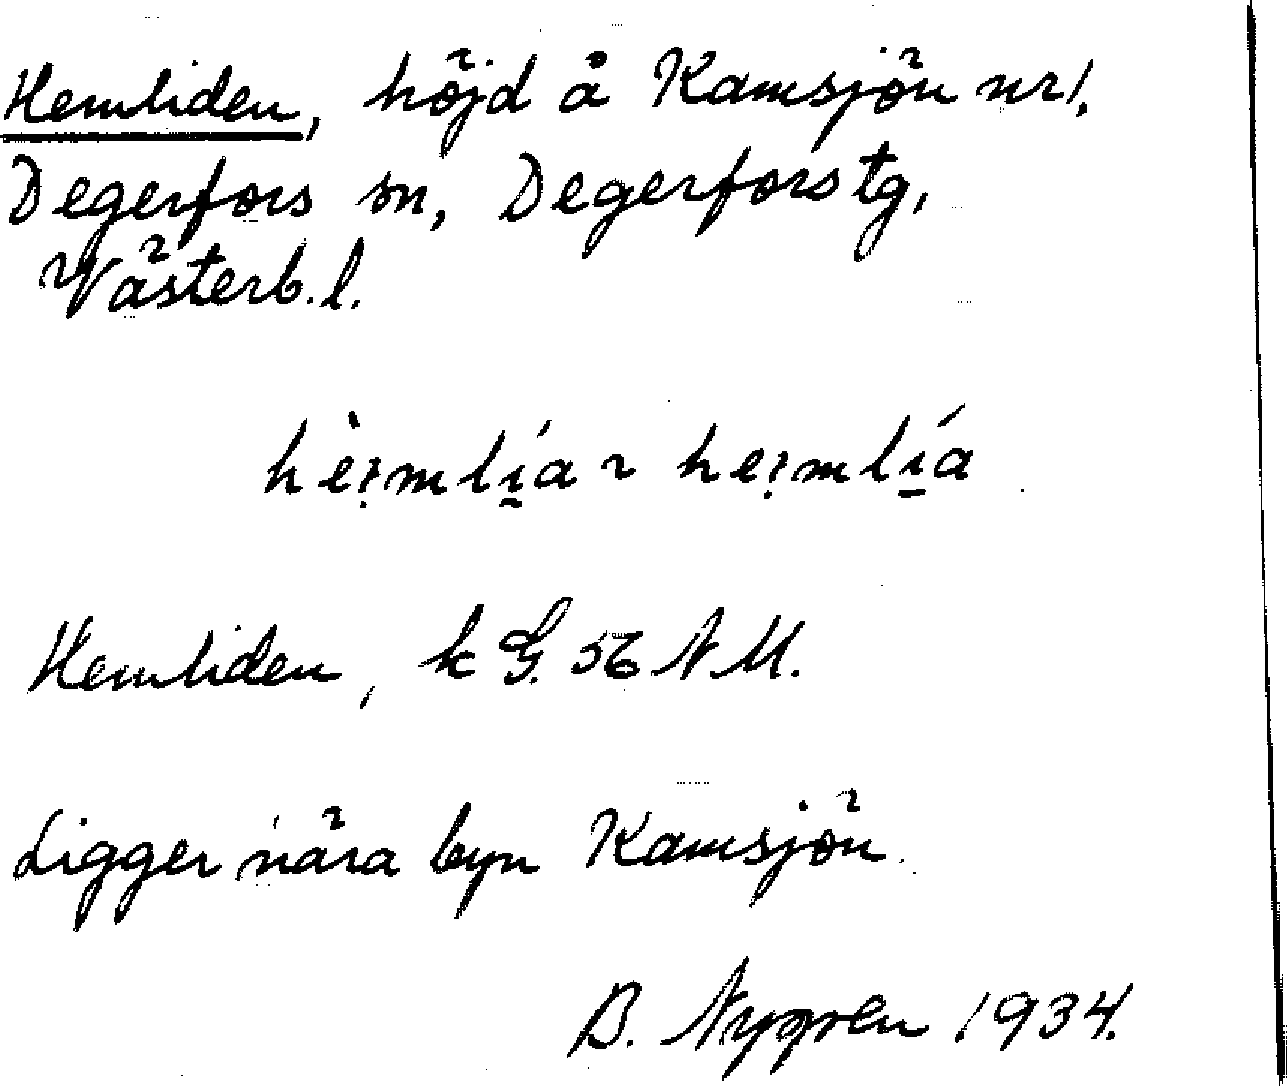 Hemliden, höjd å Kamsjön nr 1,
Degerfors sn, Degerfors tg,
Västerb. l.
Hemliden, k G. 56 N M.
Ligger nära byn Kamsjön.
B. Nygren 1934.